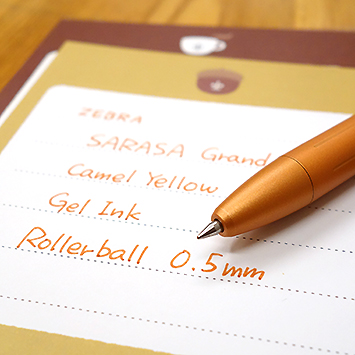 ZEBRA
SARASA Grand
Camel Yellow
Gel Ink
Rollerball 0.5mm